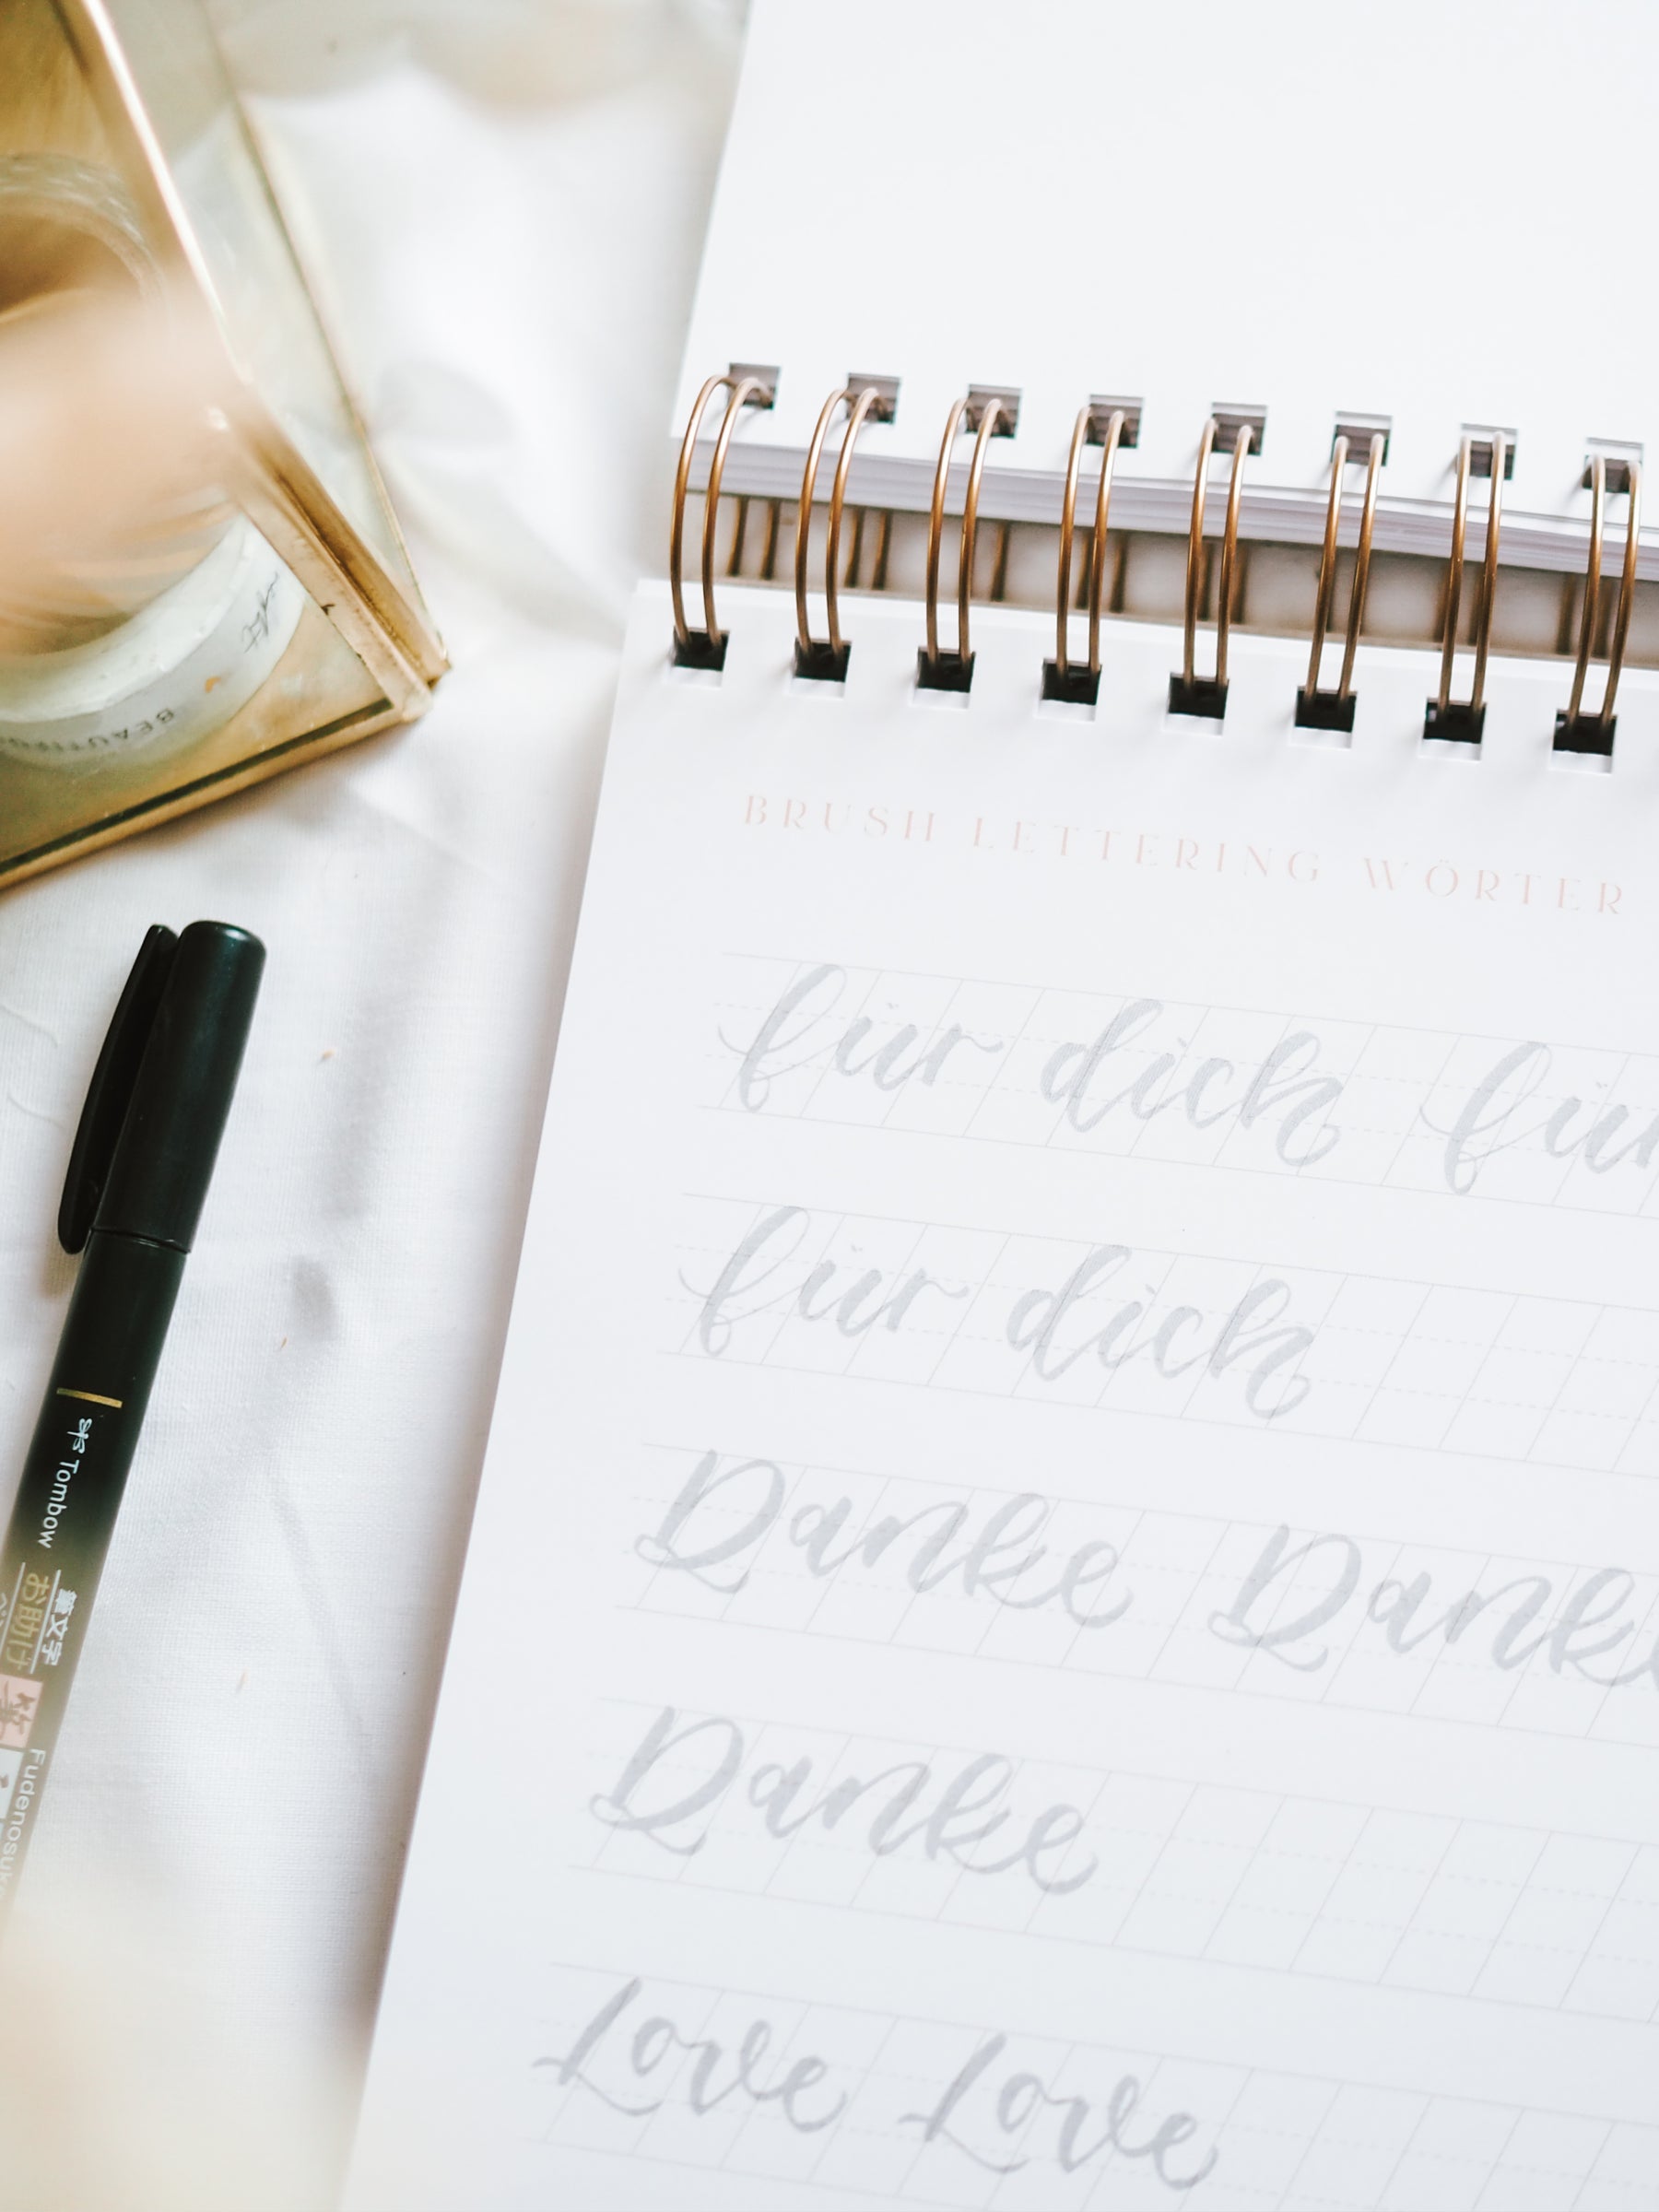 BEAUTIFUL
BRUSH LETTERING WÖRTER
für dich für
für dich
Danke Danke
Danke
Love Love
Tombow
筆文字
お助け
Fudenosuke